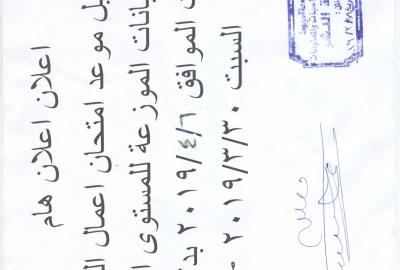 اعلان اعلان هام
يل موعد امتحان اعمال ال
يانات الموزعة للمستوى ا
ت الموافق ٢٠١٩/٤/٦ بد
السبت ٢٠١٩/٣/٣٠